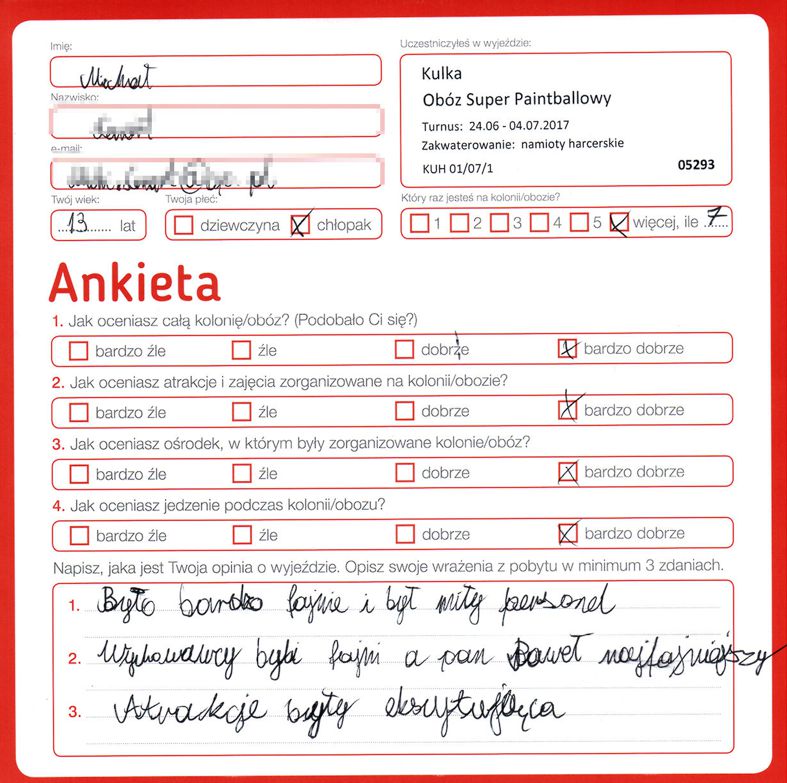 Imię:
Michał
Nazwisko:
e-mail:
Twój wiek:
13 lat
Twoja płeć:
dziewczyna chłopak
Uczestniczyłeś w wyjeździe:
Kulka
Obóz Super Paintballowy
Turnus: 24.06 - 04.07.2017
Zakwaterowanie: namioty harcerskie
KUH 01/07/1 05293
Który raz jesteś na kolonii/obozie?
1 2 3 4 5 więcej, ile 7
Ankieta
1. Jak oceniasz całą kolonię/obóz? (Podobało Ci się?)
bardzo źle źle dobrze bardzo dobrze
2. Jak oceniasz atrakcje i zajęcia zorganizowane na kolonii/obozie?
bardzo źle źle dobrze bardzo dobrze
3. Jak oceniasz ośrodek, w którym były zorganizowane kolonie/obóz?
bardzo źle źle dobrze bardzo dobrze
4. Jak oceniasz jedzenie podczas kolonii/obozu?
bardzo źle źle dobrze bardzo dobrze
Napisz, jaka jest Twoja opinia o wyjeździe. Opisz swoje wrażenia z pobytu w minimum 3 zdaniach.
1. Było bardzo fajnie i był miły personel
2. Wychowawcy byli fajni a pan Paweł najfajniejszy
3. Atrakcje były ekscytująca